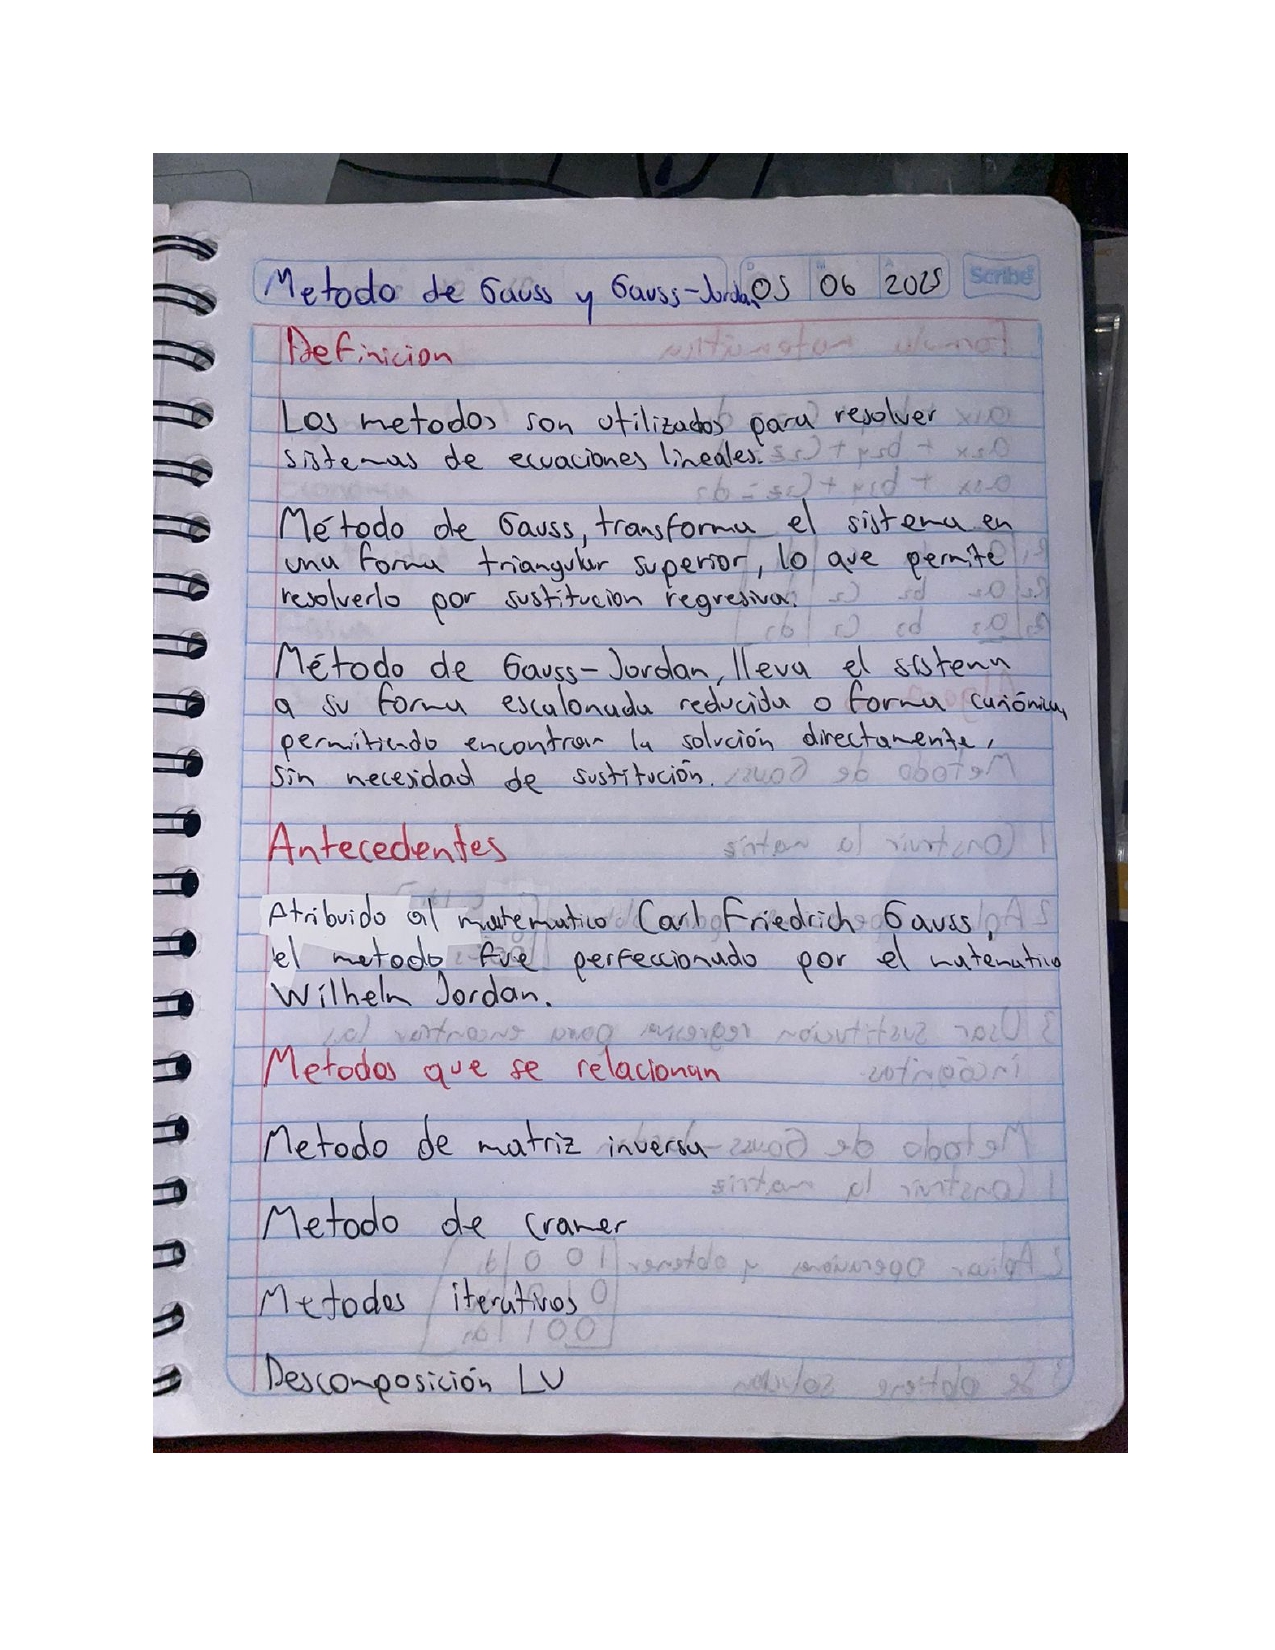 Metodo de Gauss y Gauss-Jordan 05 06 2025 Scribe
Definicion
Los metodos son utilizados para resolver
sistemas de ecuaciones lineales.
Método de Gauss, transforma el sistema en
una forma triangular superior, lo que permite
resolverlo por sustitucion regresiva.
Método de Gauss-Jordan, lleva el sistema
a su forma escalonada reducida o forma canónica,
permitiendo encontrar la solución directamente,
sin necesidad de sustitución.
Antecedentes
Atribuido al matematico Carl Friedrich Gauss,
el metodo fue perfeccionado por el matematico
Wilhelm Jordan.
Metodos que se relacionan
Metodo de matriz inversa
Metodo de cramer
Metodos iterativos
Descomposición LU